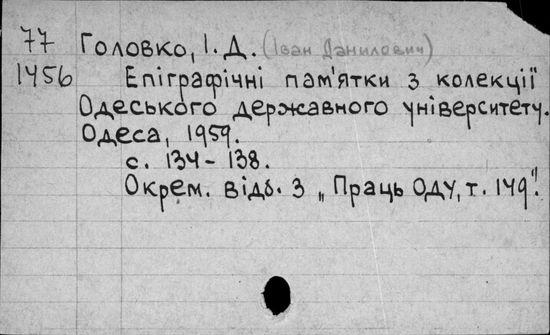 77 Головко, І. Д. (Іван Данилович)
1456 Епіграфічні пам'ятки з колекції
Одеського державного університету.
Одеса, 1959.
с. 134-138.
Окрем. відб. з „Праць ОДУ, т. 149".